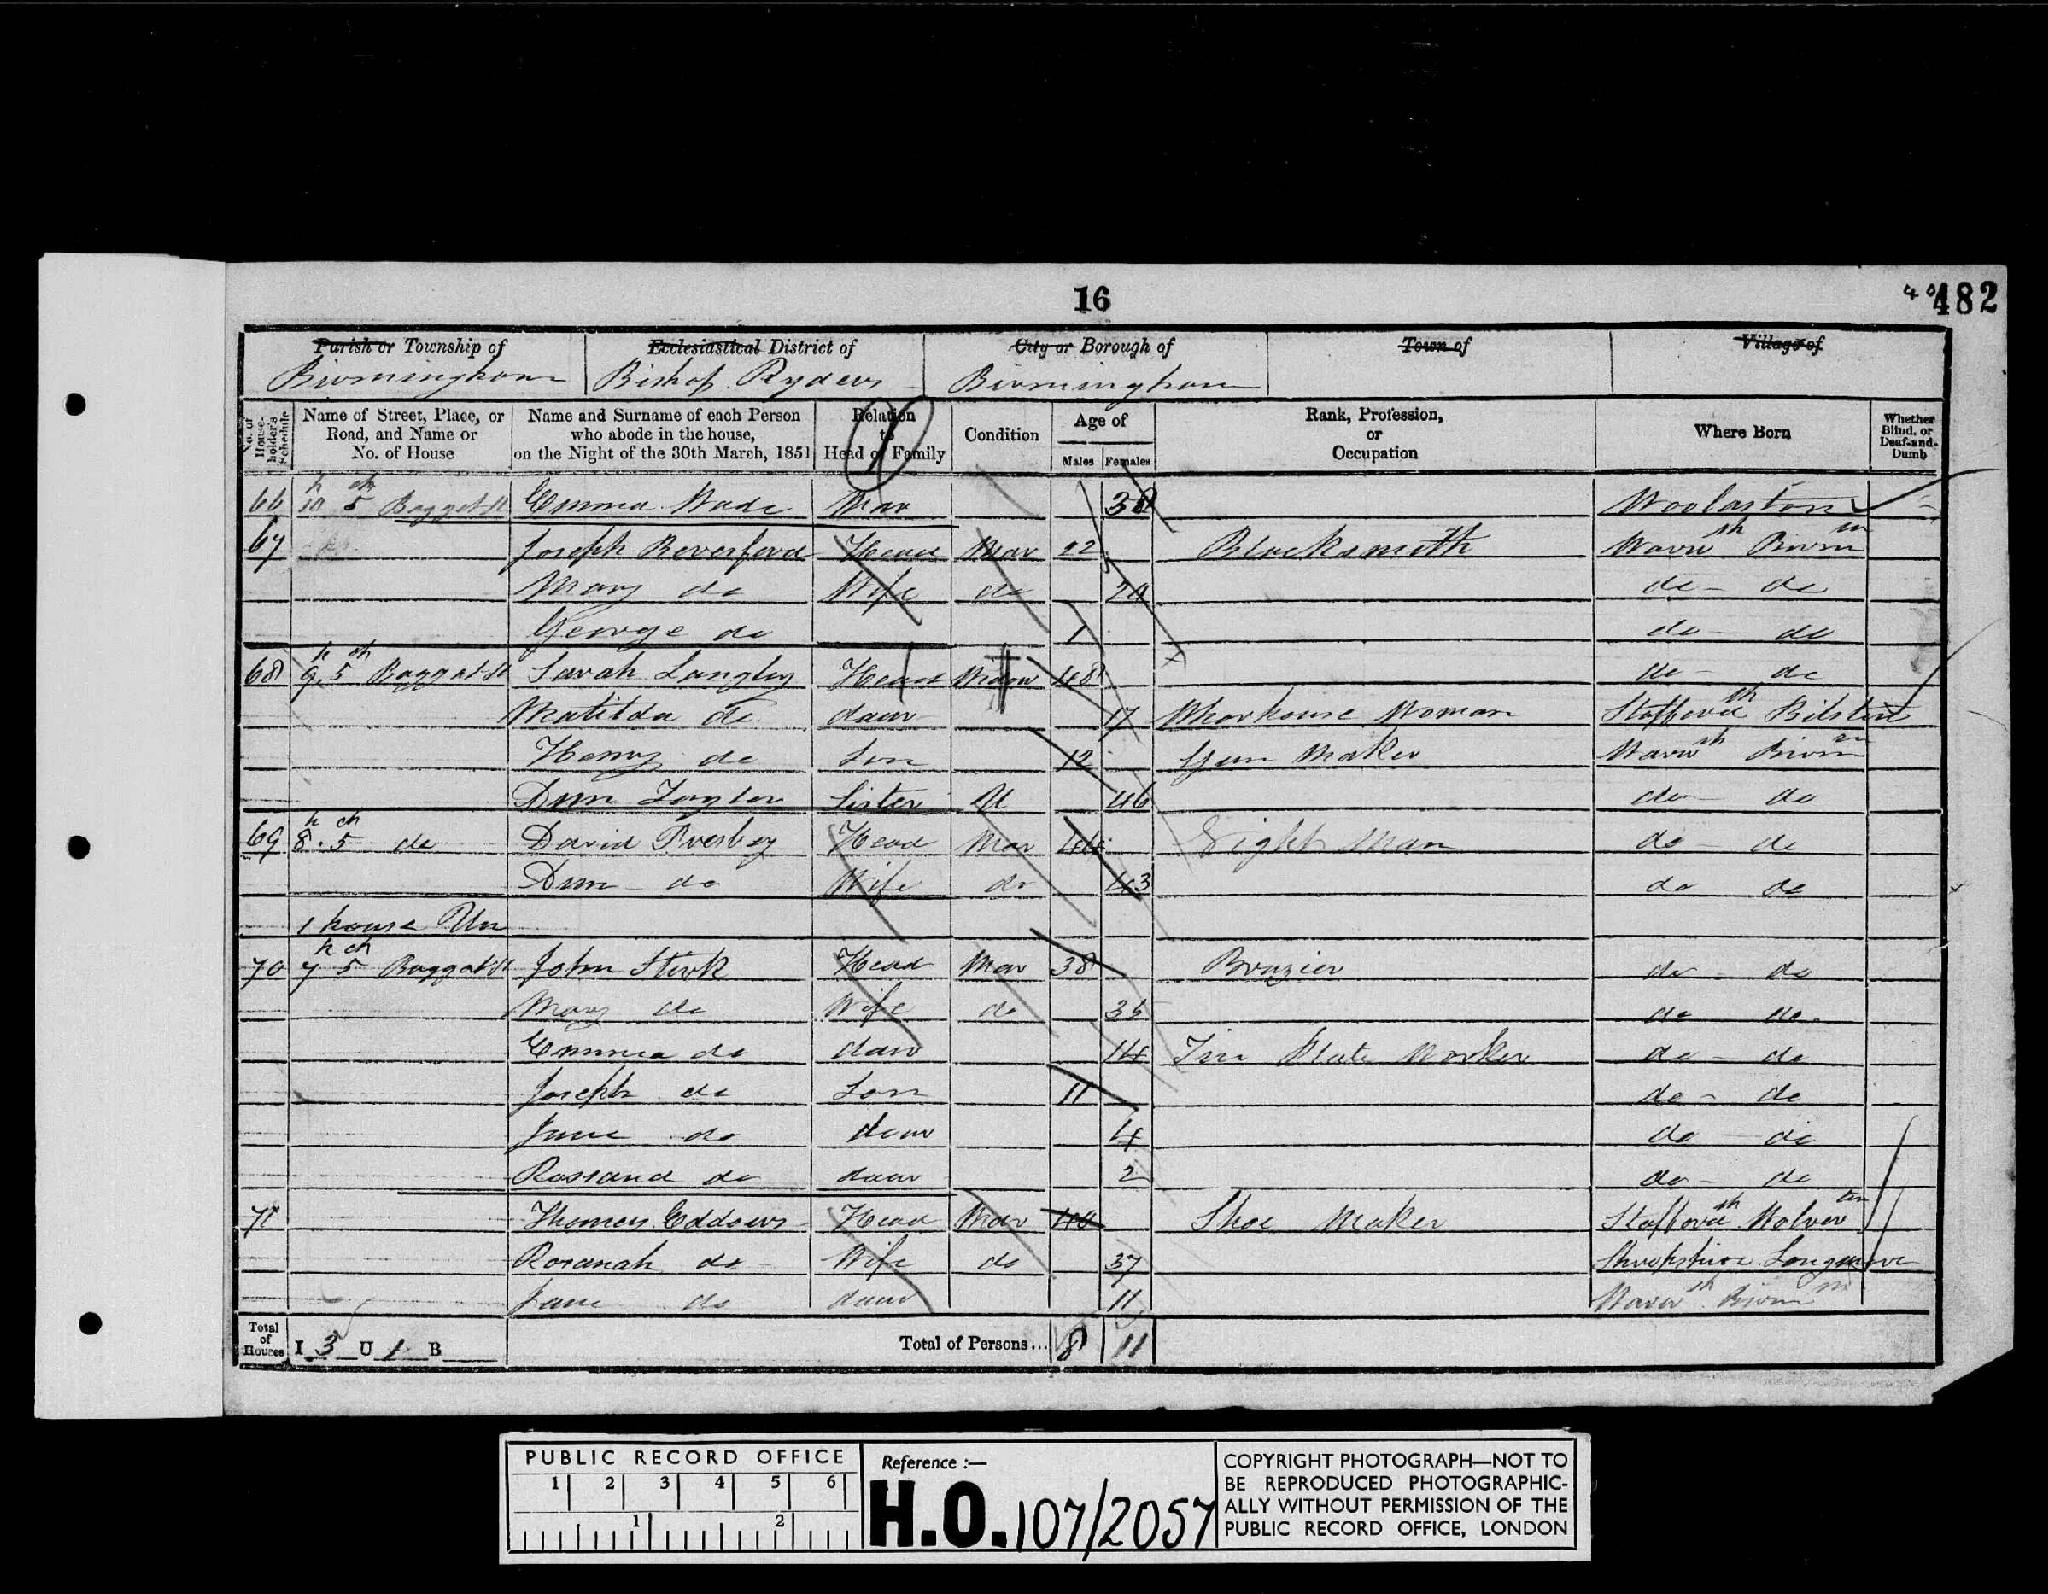 16
482
Parish or Township of
Birmingham
Ecclesiastical District of
Bishop Ryders
City or Borough of
Birmingham
Town of
Village of
No. of Householder's Schedule
Name of Street, Place, or Road, and Name or No. of House
Name and Surname of each Person who abode in the house, on the Night of the 30th March, 1851
Relation to Head of Family
Condition
Age of
Males Females
Rank, Profession, or Occupation
Where Born
Whether Blind, or Deaf-and-Dumb
66 10 h 5 ct Baggot St Emma Wade Mar Woolaston
67 Joseph Head Mar 22 Blacksmith Warwsh Birmm
Mary do Wife do do do
George do 1 do do
68 9 h 5 ct Baggot St Sarah Langley Head 48 do do
Matilda do daur 17 Wharhouse Woman Staffordsh
Henry do Son 12 Gun Maker Warwsh Birmm
Ann Taylor Sister U 46 do do
69 8 h 5 ct do David Head Mar Night Man do do
Ann do Wife do 43 do do
1 house Un
70 7 h 5 ct Baggot St John Stork Head Mar 38 Brazier do do
Mary do Wife do 35 do do
Emma do daur 14 Tin Plate Worker do do
Joseph do Son 11 do do
Jane do daur 4 do do
do daur 2 do do
71 Thomas Eddowes Head Mar 40 Shoe Maker Staffordsh
Rosanah do Wife do 37 Shropshire
Jane do daur 11 Warwsh Birmm
Total of Houses I 3 U 1 B
Total of Persons... 8 11
PUBLIC RECORD OFFICE
1 2 3 4 5 6
1 2
Reference :—
H.O. 107/2057
COPYRIGHT PHOTOGRAPH—NOT TO
BE REPRODUCED PHOTOGRAPHIC-
ALLY WITHOUT PERMISSION OF THE
PUBLIC RECORD OFFICE, LONDON